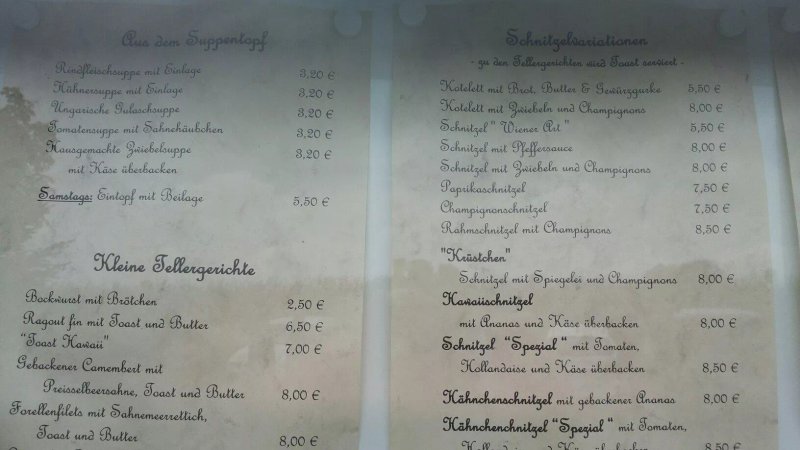 Aus dem Suppentopf
Rindfleischsuppe mit Einlage 3,20 €
Hühnersuppe mit Einlage 3,20 €
Ungarische Gulaschsuppe 3,20 €
Tomatensuppe mit Sahnehäubchen 3,20 €
Hausgemachte Zwiebelsuppe 3,20 €
mit Käse überbacken
Samstags: Eintopf mit Beilage 5,50 €
Kleine Tellergerichte
Bockwurst mit Brötchen 2,50 €
Ragout fin mit Toast und Butter 6,50 €
"Toast Hawaii" 7,00 €
Gebackener Camembert mit
Preisselbeersahne, Toast und Butter 8,00 €
Forellenfilets mit Sahnemeerrettich,
Toast und Butter 8,00 €
Schnitzelvariationen
- zu den Tellergerichten wird Toast serviert -
Kotelett mit Brot, Butter & Gewürzgurke 5,50 €
Kotelett mit Zwiebeln und Champignons 8,00 €
Schnitzel " Wiener Art " 5,50 €
Schnitzel mit Pfeffersauce 8,00 €
Schnitzel mit Zwiebeln und Champignons 8,00 €
Paprikaschnitzel 7,50 €
Champignonschnitzel 7,50 €
Rahmschnitzel mit Champignons 8,50 €
"Krüstchen"
Schnitzel mit Spiegelei und Champignons 8,00 €
Hawaiischnitzel
mit Ananas und Käse überbacken 8,00 €
Schnitzel "Spezial " mit Tomaten,
Hollandaise und Käse überbacken 8,50 €
Hähnchenschnitzel mit gebackener Ananas 8,00 €
Hähnchenchnitzel "Spezial " mit Tomaten,
Hollandaise und Käse überbacken 8,50 €